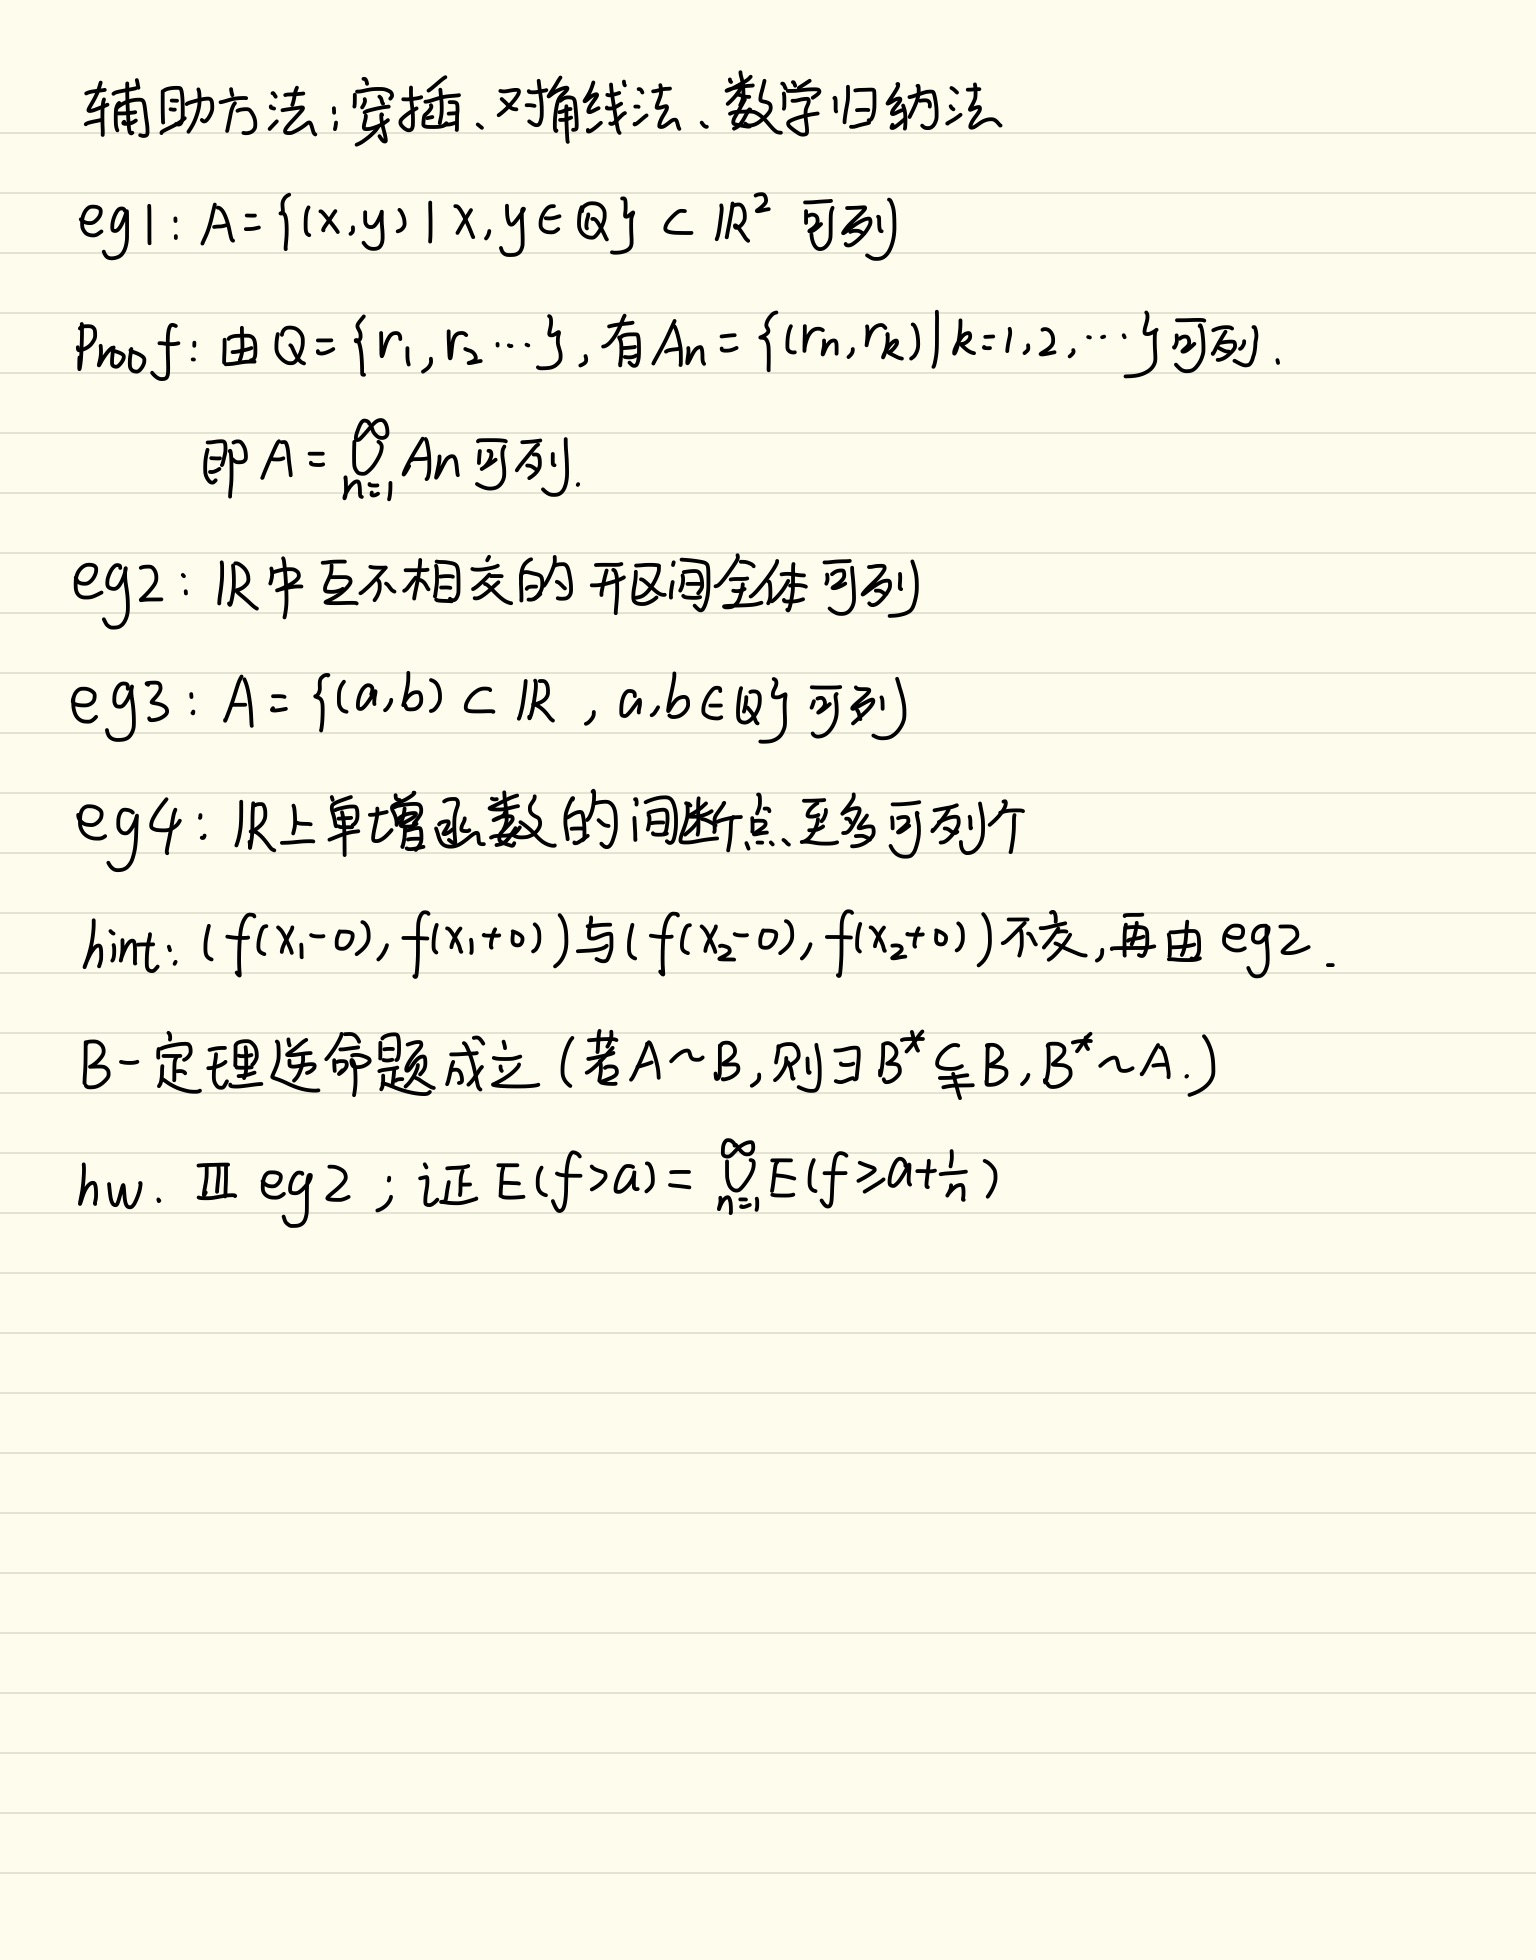 辅助方法:穿插、对角线法、数学归纳法
eg1: A={(x,y)|x,y∈Q}⊂ℝ² 可列
Proof: 由Q={r₁,r₂…},有Aₙ={(rₙ,rₖ)|k=1,2,…}可列.
即A=⋃_{n=1}^{∞}Aₙ可列.
eg2: ℝ中互不相交的开区间全体可列
eg3: A={(a,b)⊂ℝ, a,b∈Q}可列
eg4: ℝ上单增函数的间断点至多可列个
hint: (f(x₁-0),f(x₁+0))与(f(x₂-0),f(x₂+0))不交,再由eg2.
B-定理逆命题成立(若A~B,则∃B*⊊B,B*~A.)
hw. Ⅲ eg2; 证E(f>a)=⋃_{n=1}^{∞}E(f≥a+1/n)